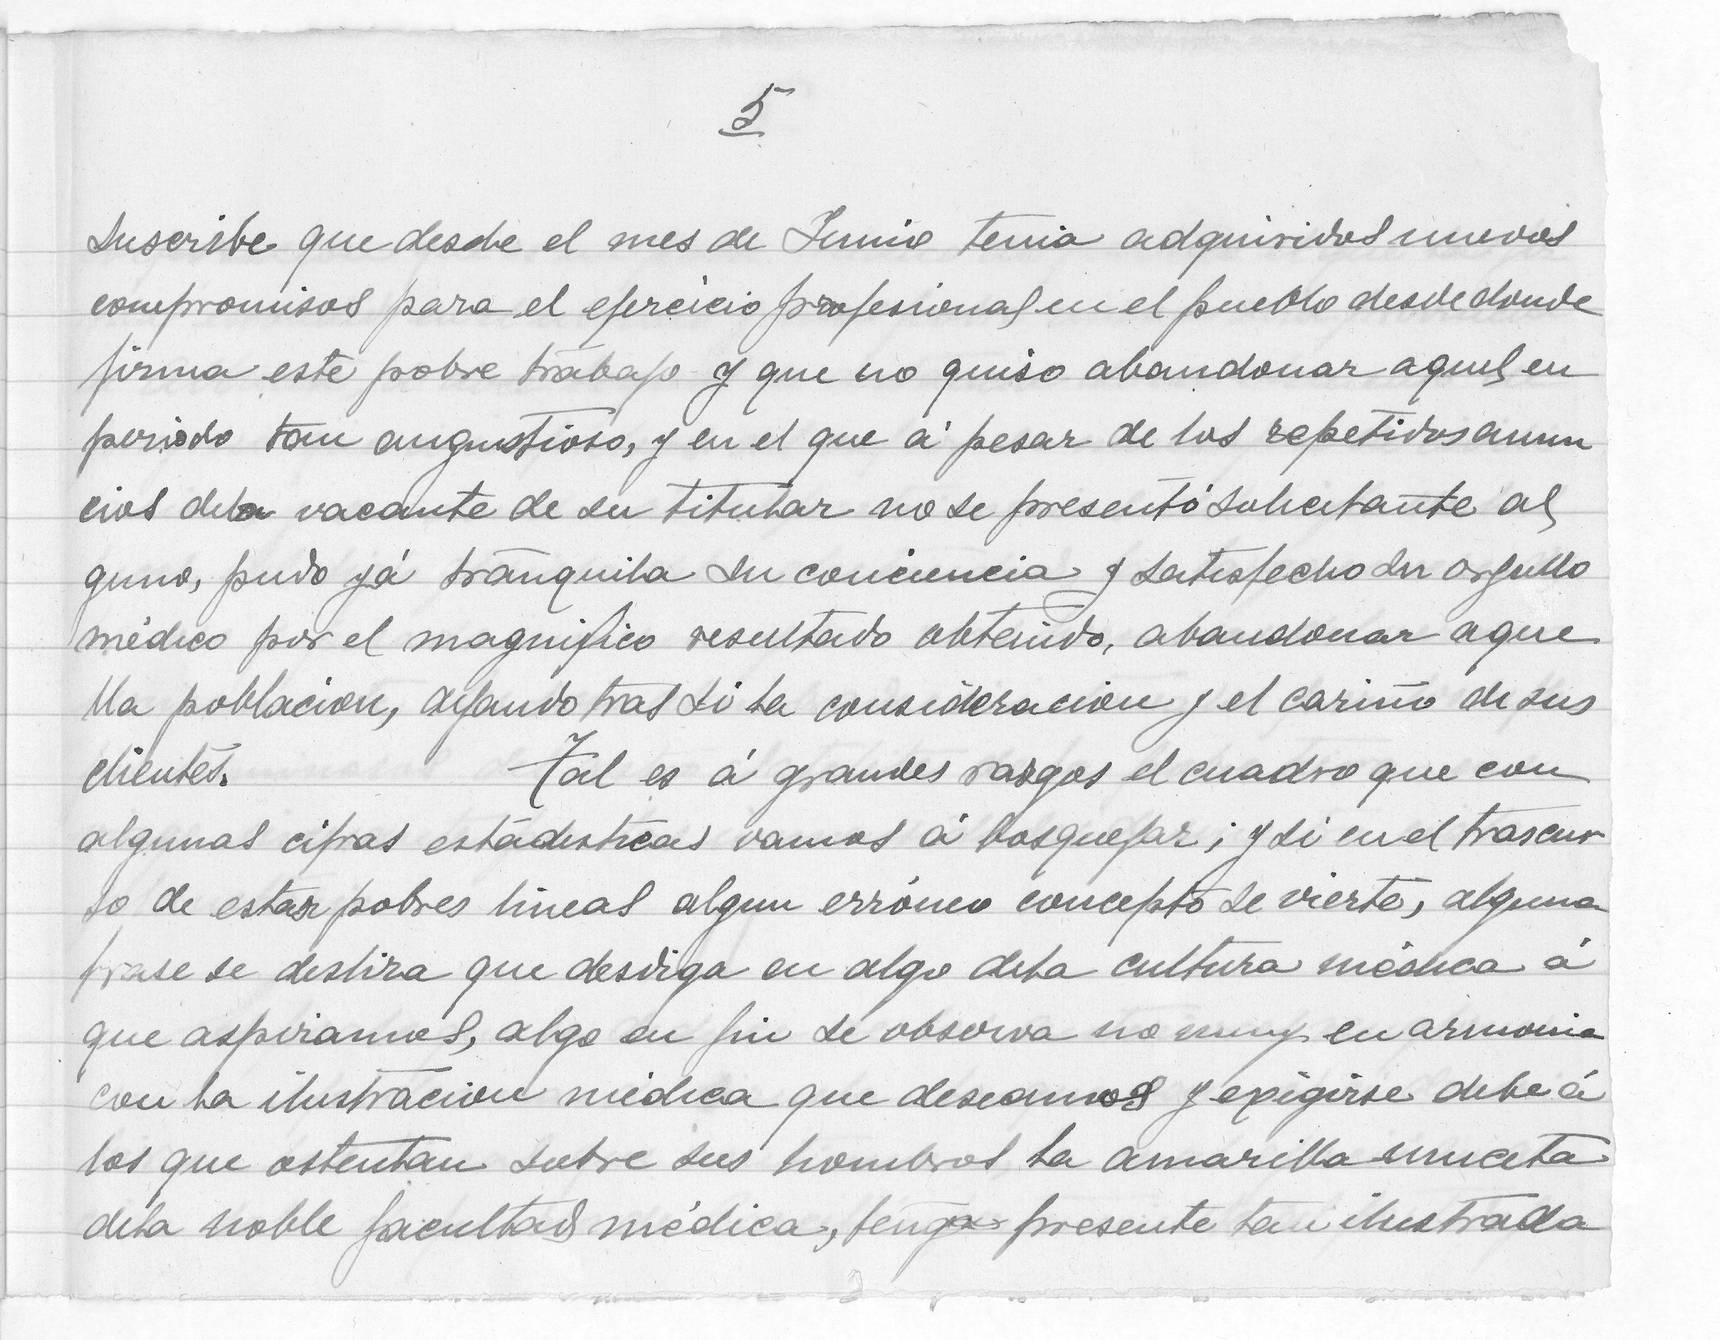 5
suscribe que desde el mes de Junio tenia adquiridos nuevos
compromisos para el ejercicio profesional en el pueblo desde donde
firma este pobre trabajo y que no quiso abandonar aquel en
periodo tan angustioso, y en el que á pesar de los repetidos anun
cios dela vacante de su titular no se presentó solicitante al
guno, pudo yá tranquila su conciencia y satisfecho su orgullo
médico por el magnifico resultado obtenido, abandonar aque
lla poblacion, dejando tras si la consideracion y el cariño de sus
clientes. Tal es á grandes rasgos el cuadro que con
algunas cifras estadisticas vamos á bosquejar; y si en el trascur
so de estas pobres lineas algun erróneo concepto se vierte, alguna
frase se desliza que desdiga en algo dela cultura médica á
que aspiramos, algo en fin se observa no muy en armonia
con la ilustracion médica que deseamos y exigirse debe á
los que ostentan sobre sus hombros la amarilla muceta
dela noble facultad médica, tenga presente tan ilustrada